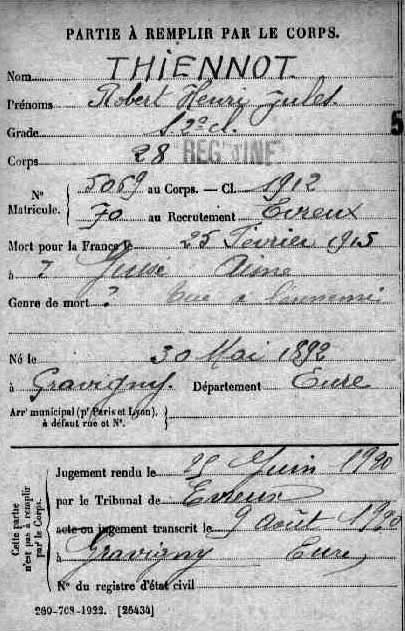 PARTIE À REMPLIR PAR LE CORPS.
Nom THIENNOT.
Prénoms Robert Henri Jules
Grade S. 2e cl.
5
Corps 28 REG. D'INF
N° Matricule. 5069 au Corps. — Cl. 1912
70 au Recrutement Evreux
Mort pour la France le 25 Février 1915
à ? Aisne
Genre de mort ? Tué à l'ennemi
Né le 30 Mai 1892
à Gravigny. Département Eure
Arrt municipal (pr Paris et Lyon), à défaut rue et N°.
Cette partie n'est pas à remplir par le Corps.
Jugement rendu le 25 Juin 1920
par le Tribunal de Evreux
acte ou jugement transcrit le 9 Août 1920
à Gravigny Eure
N° du registre d'état civil
260-708-1922. [26434]